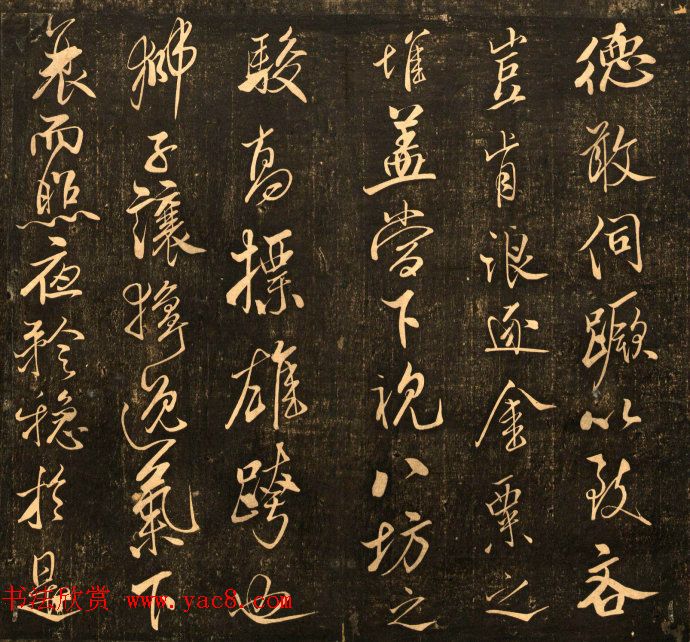 德敢伺蹶以致吝
豈肯浪逐金粟之
堆蓋當下視八坊之
駿高摽雄跨迅
獅子讓獰逸氣下
衰而照夜矜穩於是
书法欣赏 www.yac8.com